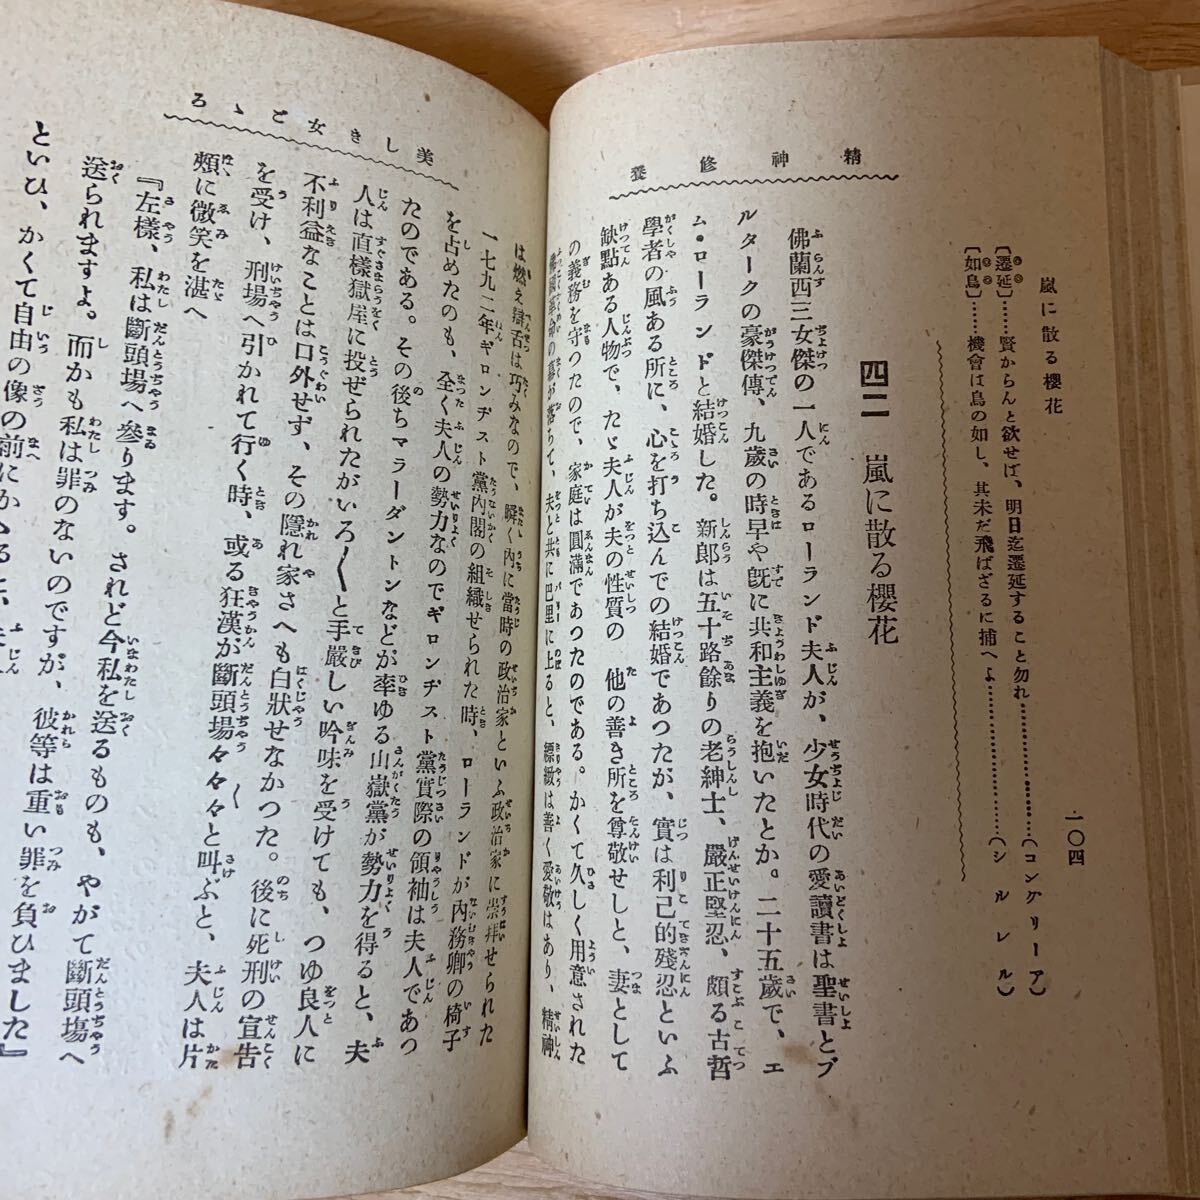 嵐に散る櫻花
一〇四
〔遷延〕…賢からんと欲せば、明日迄遷延すること勿れ……………(コングリーア)
〔如鳥〕…機會は鳥の如し、其未だ飛ばざるに捕へよ……………(シルレル)
精神修養
四二 嵐に散る櫻花
佛蘭西三女傑の一人であるローランド夫人が、少女時代の愛讀書は聖書とプ
ルタークの豪傑傳、九歳の時早や既に共和主義を抱いたとか。二十五歳で、エ
ム・ローランドと結婚した。新郎は五十路餘りの老紳士、嚴正堅忍、頗る古哲
學者の風ある所に、心を打ち込んでの結婚であつたが、實は利己的殘忍といふ
缺點ある人物で、たゞ夫人が夫の性質の 他の善き所を尊敬せしと、妻として
の義務を守つたので、家庭は圓滿であつたのである。かくて久しく用意された
革命の幕が落ちて、夫と共に巴里に上ると、縹緻は善く愛敬はあり、精神
美しき女ごゝろ
は燃え辯舌は巧みなので、瞬く内に當時の政治家といふ政治家に崇拜せられた
一七九二年ギロンヂスト黨内閣の組織せられた時、ローランドが内務卿の椅子
を占めたのも、全く夫人の勢力なのでギロンヂスト黨實際の領袖は夫人であつ
たのである。その後ちマラーダントンなどが率ゆる山嶽黨が勢力を得ると、夫
人は直樣獄屋に投ぜられたがいろ〱と手嚴しい吟味を受けても、つゆ良人に
不利益なことは口外せず、その隱れ家さへも白狀せなかつた。後に死刑の宣告
を受け、刑場へ引かれて行く時、或る狂漢が斷頭場々々々と叫ぶと、夫人は片
頬に微笑を湛へ
『左樣、私は斷頭場へ參ります。されど今私を送るものも、やがて斷頭場へ
送られますよ。而かも私は罪のないのですが、彼等は重い罪を負ひました』
といひ、かくて自由の像の前にかゝると、夫人